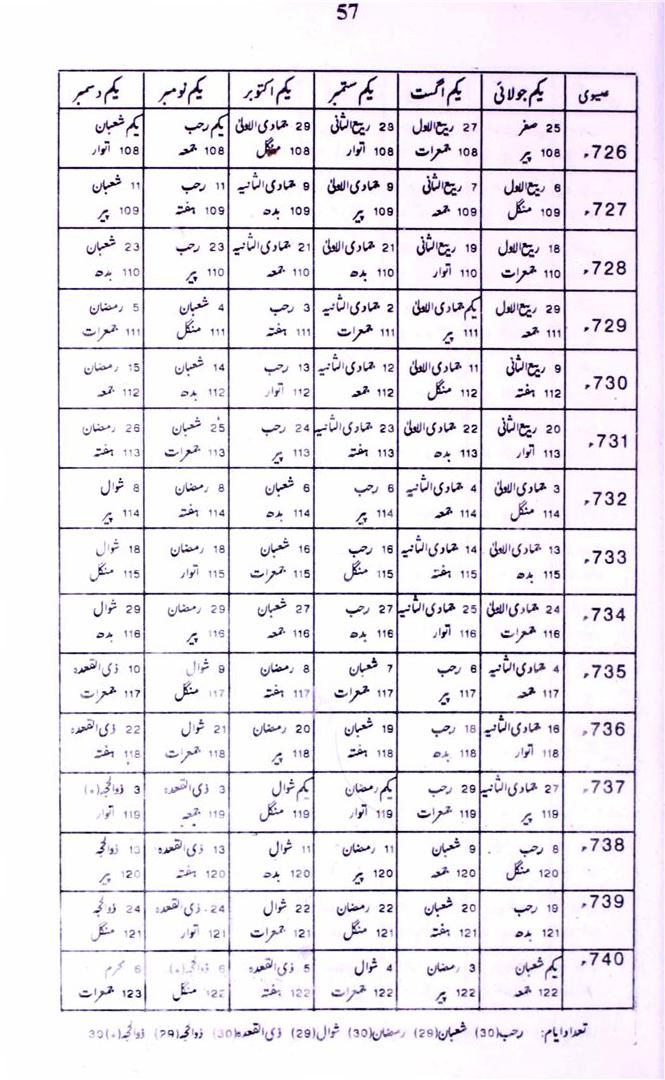 57
عیسوی یکم جولائی یکم اگست یکم ستمبر یکم اکتوبر یکم نومبر یکم دسمبر
726ء 25 صفر 27 ربیع الاول 28 ربیع الثانی 29 جمادی الاولیٰ یکم رجب یکم شعبان
108 پیر 108 جمعرات 108 اتوار 108 منگل 108 جمعہ 108 اتوار
727ء 6 ربیع الاول 7 ربیع الثانی 9 جمادی الاولیٰ 9 جمادی الثانیہ 11 رجب 11 شعبان
109 منگل 109 جمعہ 109 پیر 109 بدھ 109 ہفتہ 109 پیر
728ء 18 ربیع الاول 19 ربیع الثانی 21 جمادی الاولیٰ 21 جمادی الثانیہ 23 رجب 23 شعبان
110 جمعرات 110 اتوار 110 بدھ 110 جمعہ 110 پیر 110 بدھ
729ء 29 ربیع الاول یکم جمادی الاولیٰ 2 جمادی الثانیہ 3 رجب 4 شعبان 5 رمضان
111 جمعہ 111 پیر 111 جمعرات 111 ہفتہ 111 منگل 111 جمعرات
730ء 9 ربیع الثانی 11 جمادی الاولیٰ 12 جمادی الثانیہ 13 رجب 14 شعبان 15 رمضان
112 ہفتہ 112 منگل 112 جمعہ 112 اتوار 112 بدھ 112 جمعہ
731ء 20 ربیع الثانی 22 جمادی الاولیٰ 23 جمادی الثانیہ 24 رجب 25 شعبان 26 رمضان
113 اتوار 113 بدھ 113 ہفتہ 113 پیر 113 جمعرات 113 ہفتہ
732ء 3 جمادی الاولیٰ 4 جمادی الثانیہ 6 رجب 6 شعبان 8 رمضان 8 شوال
114 منگل 114 جمعہ 114 پیر 114 بدھ 114 ہفتہ 114 پیر
733ء 13 جمادی الاولیٰ 14 جمادی الثانیہ 16 رجب 16 شعبان 18 رمضان 18 شوال
115 بدھ 115 ہفتہ 115 منگل 115 جمعرات 115 اتوار 115 منگل
734ء 24 جمادی الاولیٰ 25 جمادی الثانیہ 27 رجب 27 شعبان 29 رمضان 29 شوال
116 جمعرات 116 اتوار 116 بدھ 116 جمعہ 116 پیر 116 بدھ
735ء 4 جمادی الثانیہ 6 رجب 7 شعبان 8 رمضان 9 شوال 10 ذی القعدہ
117 جمعہ 117 پیر 117 جمعرات 117 ہفتہ 117 منگل 117 جمعرات
736ء 16 جمادی الثانیہ 18 رجب 19 شعبان 20 رمضان 21 شوال 22 ذی القعدہ
118 اتوار 118 بدھ 118 ہفتہ 118 پیر 118 جمعرات 118 ہفتہ
737ء 27 جمادی الثانیہ 29 رجب یکم رمضان یکم شوال 3 ذی القعدہ 3 ذوالحجہ(+)
119 پیر 119 جمعرات 119 اتوار 119 منگل 119 جمعہ 119 اتوار
738ء 8 رجب 9 شعبان 11 رمضان 11 شوال 13 ذی القعدہ 13 ذوالحجہ
120 منگل 120 جمعہ 120 پیر 120 بدھ 120 ہفتہ 120 پیر
739ء 19 رجب 20 شعبان 22 رمضان 22 شوال 24 ذی القعدہ 24 ذوالحجہ
121 بدھ 121 ہفتہ 121 منگل 121 جمعرات 121 اتوار 121 منگل
740ء یکم شعبان 3 رمضان 4 شوال 5 ذی القعدہ 6 ذوالحجہ(+) 6 محرم
122 جمعہ 122 پیر 122 جمعرات 122 ہفتہ 122 منگل 123 جمعرات
تعداد ایام: رجب(30) شعبان(29) رمضان(30) شوال(29) ذی القعدہ(30) ذوالحجہ(29) ذوالحجہ(+)30